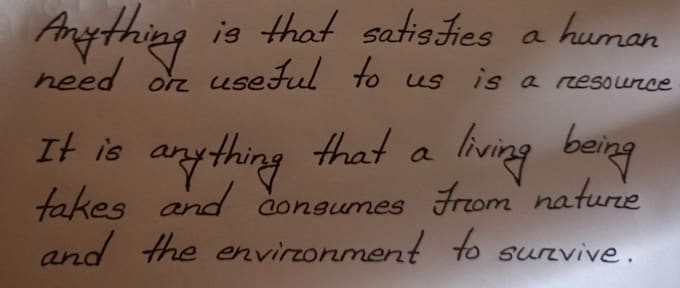 Anything is that satisfies a human
need or useful to us is a resource
It is anything that a living being
takes and consumes from nature
and the environment to survive.